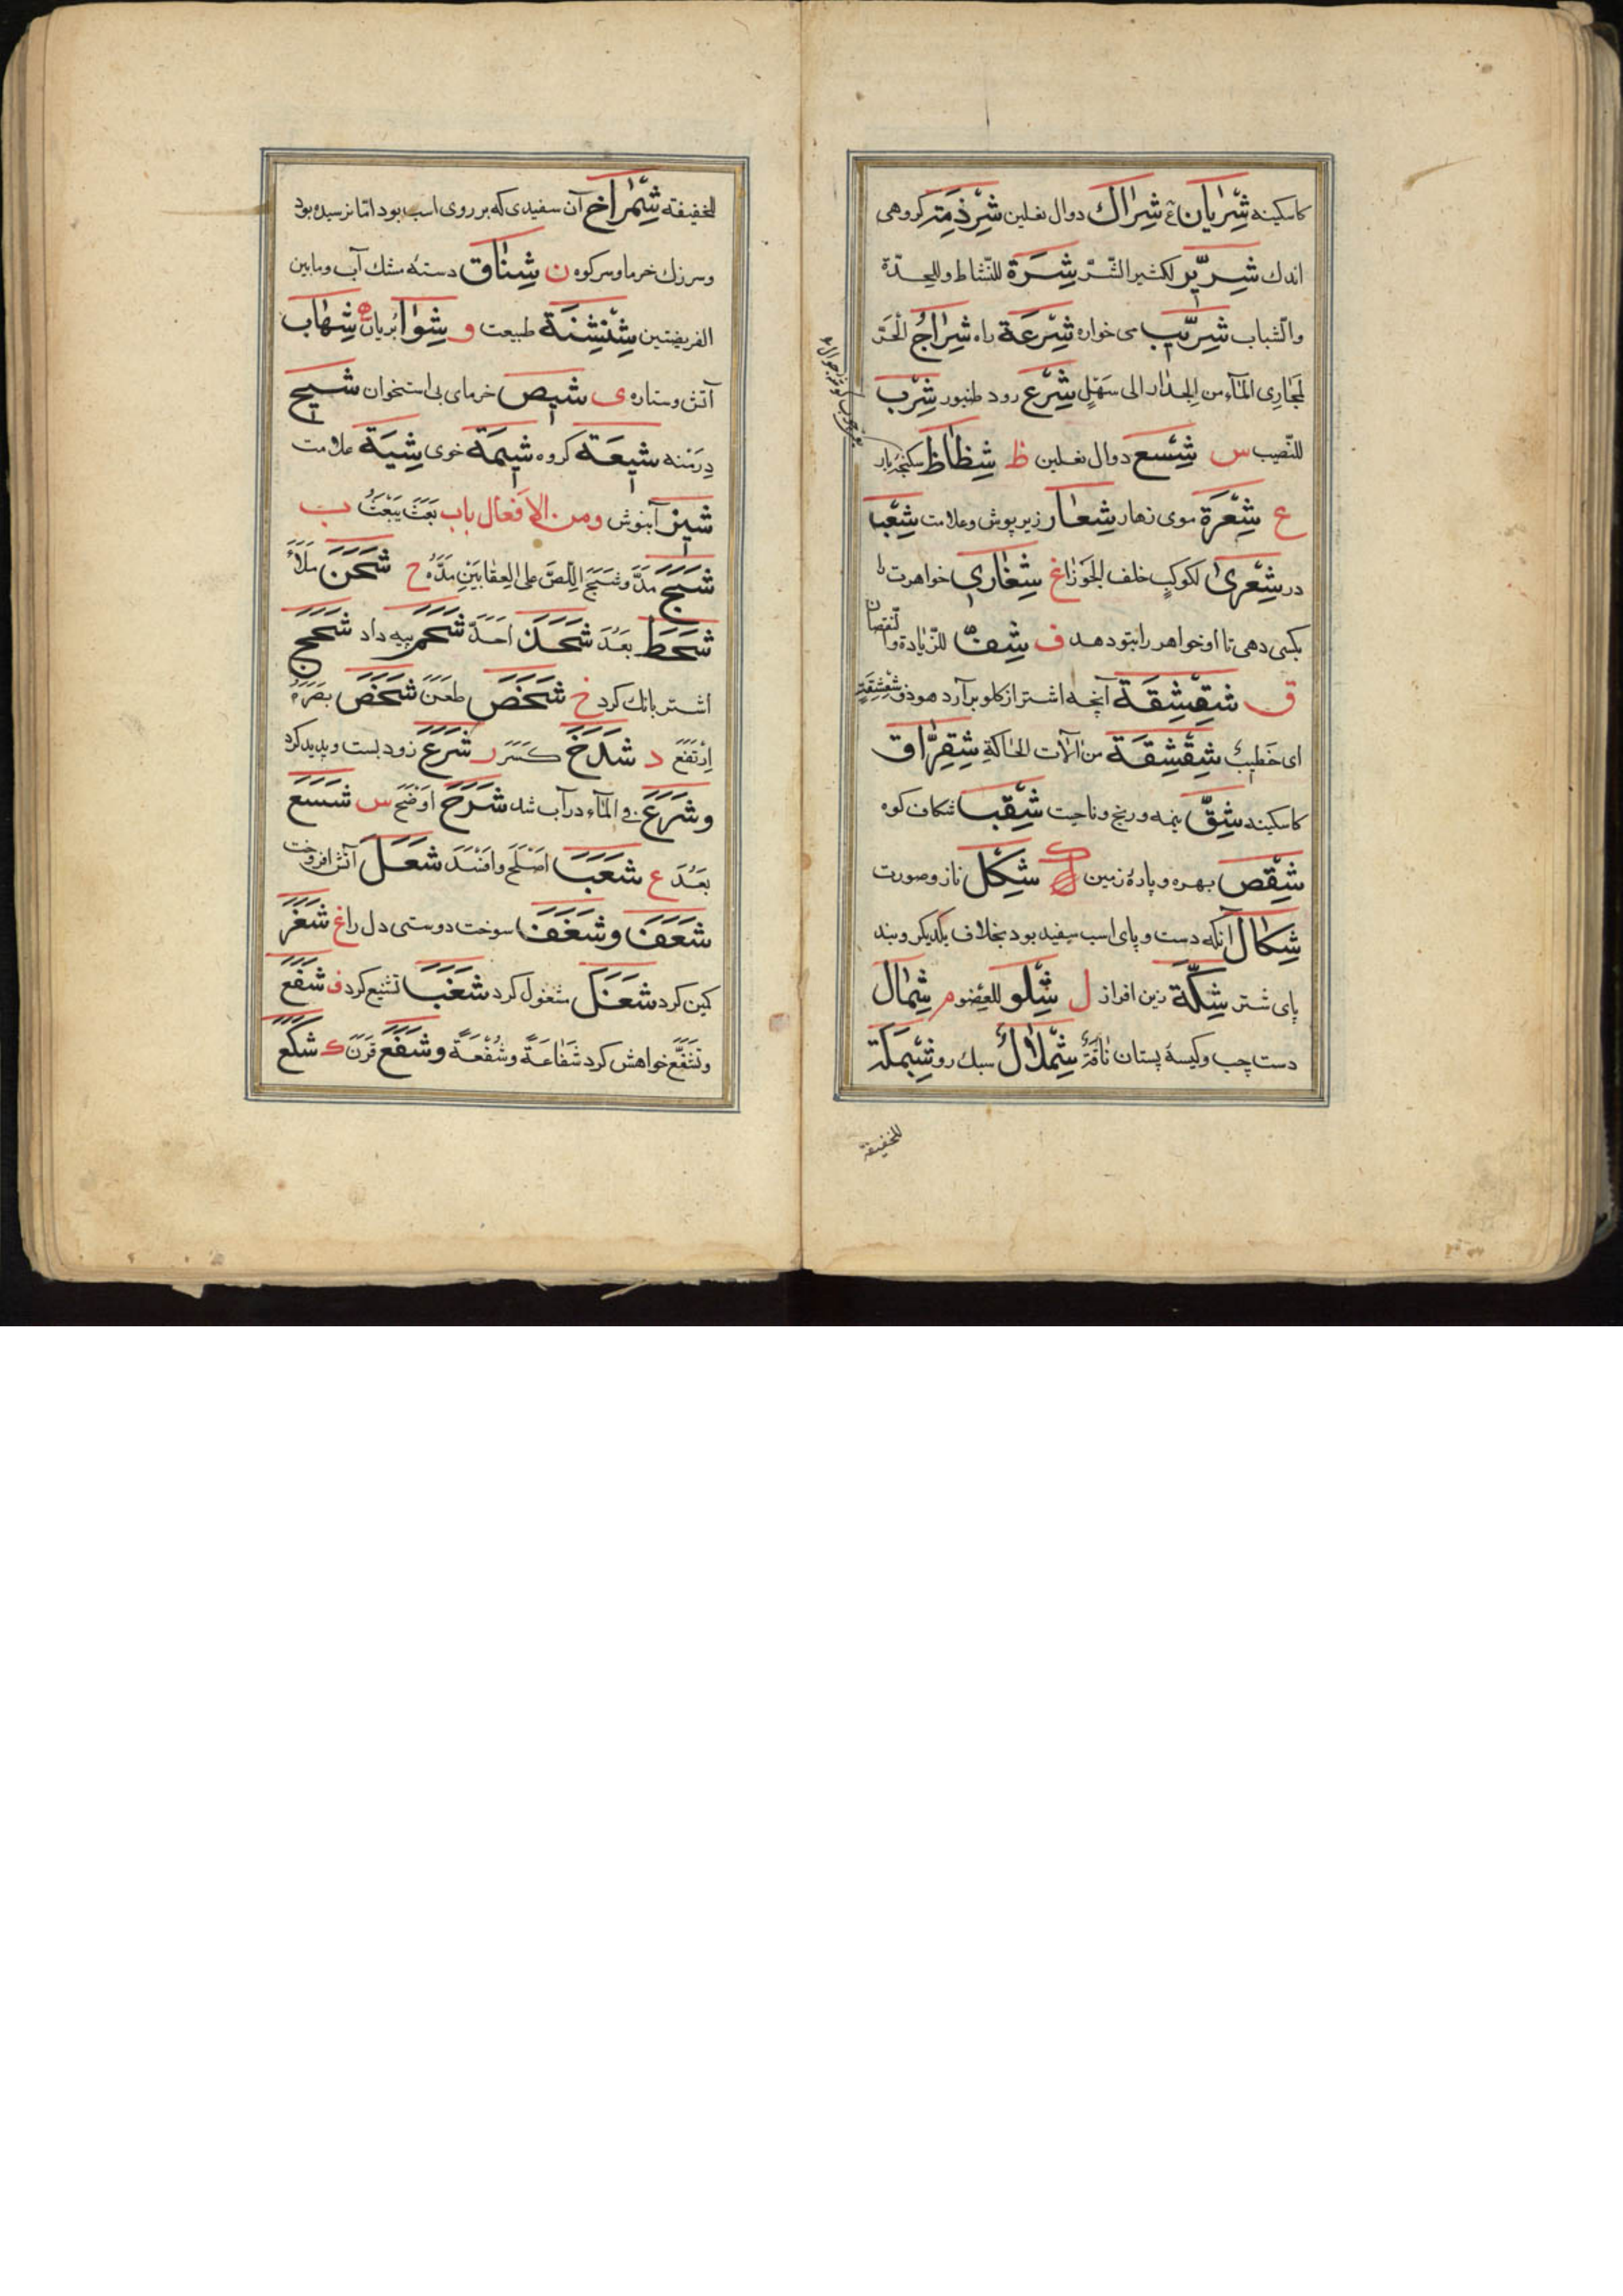 كاسكينه شِرْيان شِراك دوال نعلين شِرْذِمَة كروهى
اندك شِرّير لكثير الشّرّ شِرَة للنّشاط وللحدّة
والشباب شِرّيب مى خواره شِرْعَة راه شِراجُ الحَرّ
لمجارى المآء من الجدار الى سَهْلٍ شِرْع رود طنبور شِرْب
للنّصيب س شِسْع دوال نعلين ظ شِظاظ
ع شِعْرَة موى زهار شِعار زيرپوش وعلامت شِعْب
دره شِعْرى لكوكب خلف الجوزا غ شِغارى خواهرت را
بكسى دهى تا او خواهر را بتو دهد ف شِفّ للزّيادة والنقصان
ق شِقْشِقَة آنچه اشتر از كلو برآرد هو ذو شِقْشِقَةٍ
اى خَطيبٌ شِقْشِقَة من الآت الحاكة شِقِرّاق
كاسكينه شِقّ نيمه ورنج وناحيت شِقْب شكاف كوه
شِقْص بهره وپارۀ زمين ك شِكْل ناز وصورت
شِكال آنكه دست وپاى اسب سپيد بود بخلاف يكديكر وبند
پاى شتر شِكّة زين افراز ل شِلْو للعضو م شِمال
دست چپ وكيسۀ پستان ناقَةٌ شِمْلالٌ سبك رو شِمْلَة
للخفيفة
للخفيفة شِمْراخ آن سفيدى كه بر روى اسب بود امّا نرسيده بود
وسرزك خرما وسركوه ن شِناق دستۀ مشك آب ومابين
الفريضتين شِنْشِنَة طبيعت و شِوا بريان ه شِهاب
آتش وستاره ى شيص خرماى بى استخوان شيح
دِرَمْنه شيعَة كروه شيمَة خوى شِيَة علامت
شيز آبنوش ومن الافعال باب بَعَثَ يَبْعَثُ ب
شَبَحَ مَدَّ وشَبَحَ اللِّصَّ على العِقابَيْنِ مَدَّهُ ح شَحَنَ مَلَأَ
شَحَطَ بَعُدَ شَحَذَ اَحَدَّ شَحَمَ پيه داد شَحَجَ
اشتر بانك كرد خ شَخَصَ طَعَنَ شَخَصَ بَصَرُهُ
اِرْتَفَعَ د شَدَخَ كَسَرَ ر شَرَعَ زود بست وپديد كرد
وشَرَعَ فى المآء در آب شد شَرَحَ اَوْضَحَ س شَسَعَ
بَعُدَ ع شَعَبَ اَصْلَحَ وافْسَدَ شَعَلَ آتش افروخت
شَعَفَ وشَغَفَ سوخت دوستى دل را غ شَغَرَ
كمين كرد شَغَلَ مشغول كرد شَغَبَ تشنيع كرد ف شَفَعَ
وتَشَفَّعَ خواهش كرد شَفاعَةً وشُفْعَةً وشَفَعَ قَرَنَ ك شَكَعَ